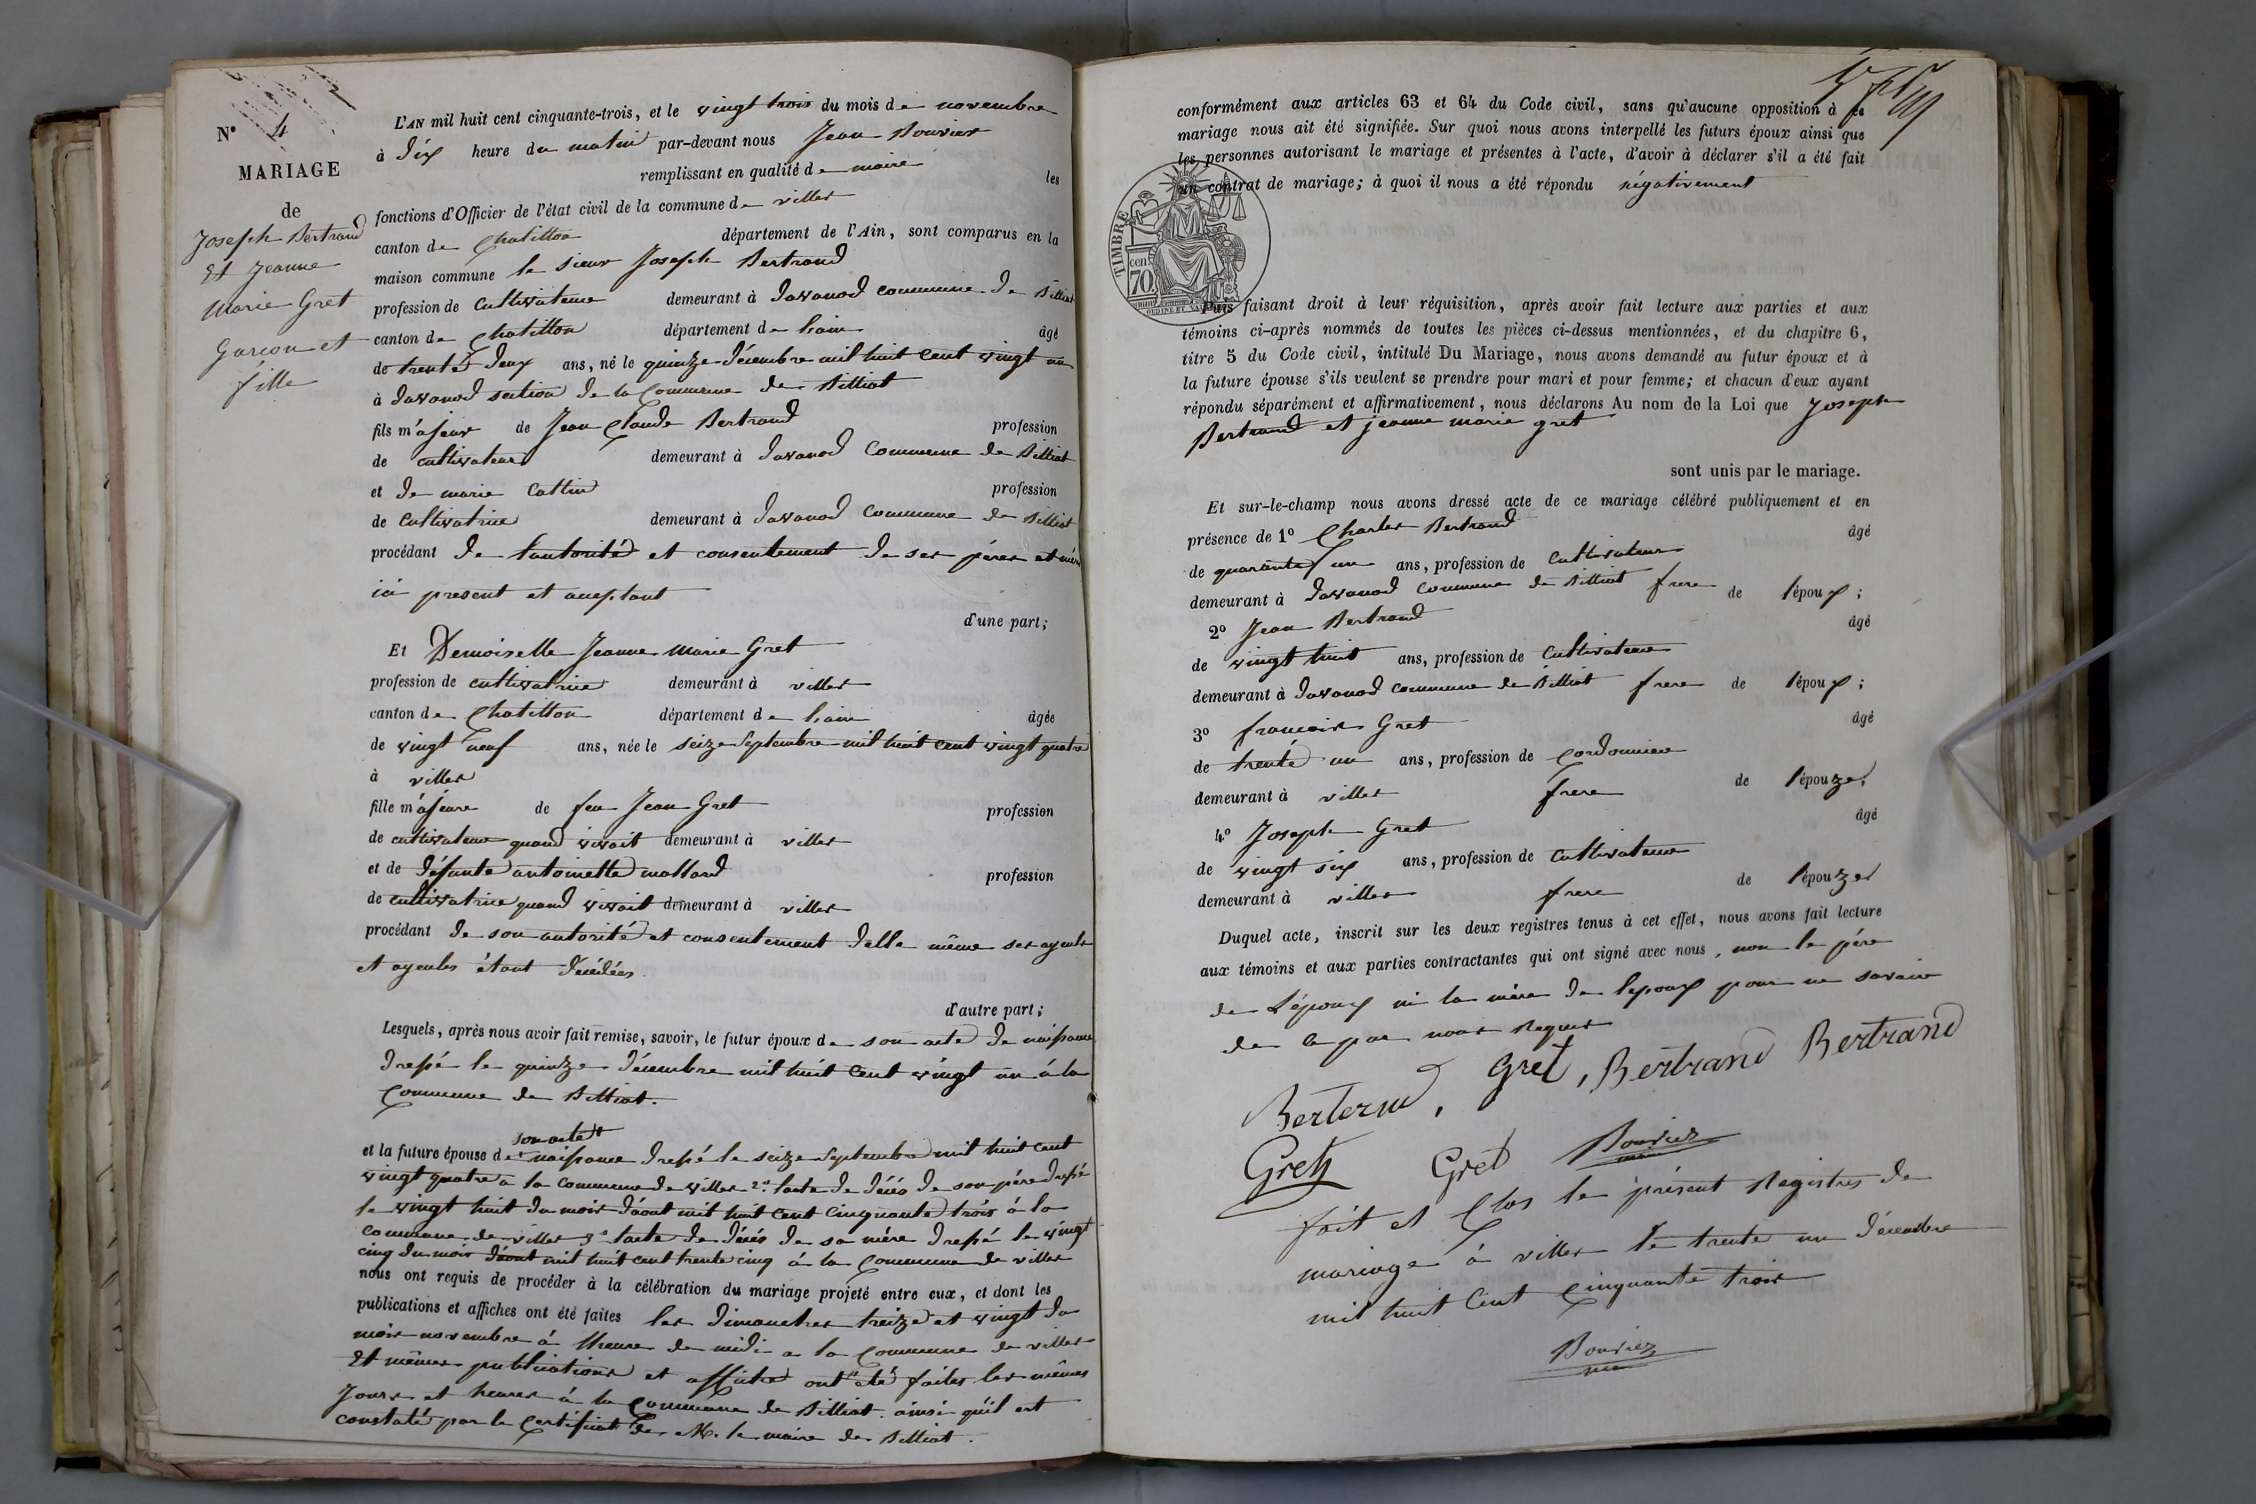 N° 4
MARIAGE
de
Joseph Bertrand
Et Jeanne
Marie Gret
Garcon et
fille
L'AN mil huit cent cinquante-trois, et le vingt trois du mois de novembre
à dix heure du matin par-devant nous Jean Bouvier
remplissant en qualité de maire les
fonctions d'Officier de l'état civil de la commune de villes
canton de Chatillon département de l'Ain, sont comparus en la
maison commune le sieur Joseph Bertrand
profession de cultivateur demeurant à davanod commune de Billiat
canton de Chatillon département de lain âgé
de trente deux ans, né le quinze décembre mil huit cent vingt un
à davanod section de la Commune de Billiat
fils majeur de Jean Claude Bertrand profession
de cultivateur demeurant à davanod Commune de Billiat
et de marie Cattin profession
de cultivatrice demeurant à davanod Commune de Billiat
procédant de l'autorité et consentement de ses péres et mère
ici present et aceptant
d'une part;
Et Demoiselle Jeanne Marie Gret
profession de cultivatrice demeurant à villes
canton de Chatillon département de lain âgée
de vingt neuf ans, née le seize Septembre mil huit cent vingt quatre
à villes
fille majeure de feu Jean Gret profession
de cultivateur quand vivait demeurant à villes
et de défunte antoinette mollard profession
de cultivatrice quand vivait demeurant à villes
procédant de son autorité et consentement delle même ses ayeuls
et ayeules étant décédées
d'autre part;
Lesquels, après nous avoir fait remise, savoir, le futur époux de son acte de naissance
dressé le quinze décembre mil huit cent vingt un à la
Commune de Billiat.
son acte
et la future épouse de naissance dressé le seize Septembre mil huit cent
vingt quatre a la commune de villes 2° lacte de décés de son pére dressé
le vingt huit du mois d'aout mil huit cent cinquante trois à la
commune de villes 3° lacte de décés de sa mére dressé le vingt
cinq du mois d'aout mil huit cent trente cinq à la Commune de villes
nous ont requis de procéder à la célébration du mariage projeté entre eux, et dont les
publications et affiches ont été faites les dimanches treize et vingt du
mois novembre à lheure de midi a la Commune de villes
Et mêmes publications et affiches ont été faites les mêmes
Jours et heures à la Commune de Billiat. ainsi qu'il est
constaté par le Certificat de M. le maire de Billiat.
conformément aux articles 63 et 64 du Code civil, sans qu'aucune opposition à ce
mariage nous ait été signifiée. Sur quoi nous avons interpellé les futurs époux ainsi que
les personnes autorisant le mariage et présentes à l'acte, d'avoir à déclarer s'il a été fait
un contrat de mariage; à quoi il nous a été répondu négativement
TIMBRE
cen
70
Puis faisant droit à leur réquisition, après avoir fait lecture aux parties et aux
témoins ci-après nommés de toutes les pièces ci-dessus mentionnées, et du chapitre 6,
titre 5 du Code civil, intitulé Du Mariage, nous avons demandé au futur époux et à
la future épouse s'ils veulent se prendre pour mari et pour femme; et chacun d'eux ayant
répondu séparément et affirmativement, nous déclarons Au nom de la Loi que Joseph
Bertrand et jeanne marie gret
sont unis par le mariage.
Et sur-le-champ nous avons dressé acte de ce mariage célébré publiquement et en
présence de 1° Charles Bertrand âgé
de quarante un ans, profession de cultivateur
demeurant à davanod Commune de Billiat frere de lépoux;
2° Jean Bertrand âgé
de vingt huit ans, profession de cultivateur
demeurant à davanod commune de Billiat frere de lépoux;
3° francois Gret âgé
de trente un ans, profession de cordonnier
demeurant à villes frere de lépouze;
4° Joseph Gret âgé
de vingt six ans, profession de cultivateur
demeurant à villes frere de lépouze
Duquel acte, inscrit sur les deux registres tenus à cet effet, nous avons fait lecture
aux témoins et aux parties contractantes qui ont signé avec nous, non le pére
de L'époux ni la mére de lepoux pour ne savoir
de ce par nous Requis
Berterand, Gret, Bertrand Bertrand
Gret Gret Bouvier
fait et Clos le présent Registres de
mariage à villes le trente un décembre
mil huit Cent Cinquante trois
Bouvier